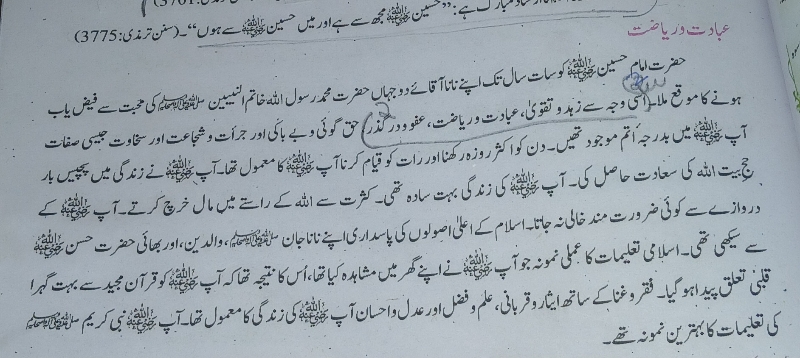 ارشاد مبارک ہے: ”حسین رضی اللہ عنہ مجھ سے ہے اور میں حسین رضی اللہ عنہ سے ہوں“۔ (سنن ترمذی: 3775)
عبادت و ریاضت
حضرت امام حسین رضی اللہ عنہ کو سات سال تک اپنے نانا آقائے دو جہاں حضرت محمد رسول اللہ خاتم النبیین صلی اللہ علیہ وسلم کی محبت سے فیض یاب
ہونے کا موقع ملا۔ اسی وجہ سے زہد و تقویٰ، عبادت و ریاضت، عفو و درگذر، حق گوئی و بے باکی اور جرأت و شجاعت اور سخاوت جیسی صفات
آپ رضی اللہ عنہ میں بدرجہ اتم موجود تھیں۔ دن کو اکثر روزہ رکھنا اور رات کو قیام کرنا آپ رضی اللہ عنہ کا معمول تھا۔ آپ رضی اللہ عنہ نے زندگی میں پچیس بار
حج بیت اللہ کی سعادت حاصل کی۔ آپ رضی اللہ عنہ کی زندگی بہت سادہ تھی۔ کثرت سے اللہ کے راستے میں مال خرچ کرتے۔ آپ رضی اللہ عنہ کے
دروازے سے کوئی ضرورت مند خالی نہ جاتا۔ اسلام کے اعلیٰ اصولوں کی پاسداری اپنے نانا جان صلی اللہ علیہ وسلم، والدین، اور بھائی حضرت حسن رضی اللہ عنہ
سے سیکھی تھی۔ اسلامی تعلیمات کا عملی نمونہ جو آپ رضی اللہ عنہ نے اپنے گھر میں مشاہدہ کیا تھا، اُس کا نتیجہ تھا کہ آپ رضی اللہ عنہ کو قرآن مجید سے بہت گہرا
قلبی تعلق پیدا ہو گیا۔ فقر و غنا کے ساتھ ایثار و قربانی، علم و فضل اور عدل و احسان آپ رضی اللہ عنہ کی زندگی کا معمول تھا۔ آپ رضی اللہ عنہ نبی کریم صلی اللہ علیہ وسلم
کی تعلیمات کا بہترین نمونہ تھے۔